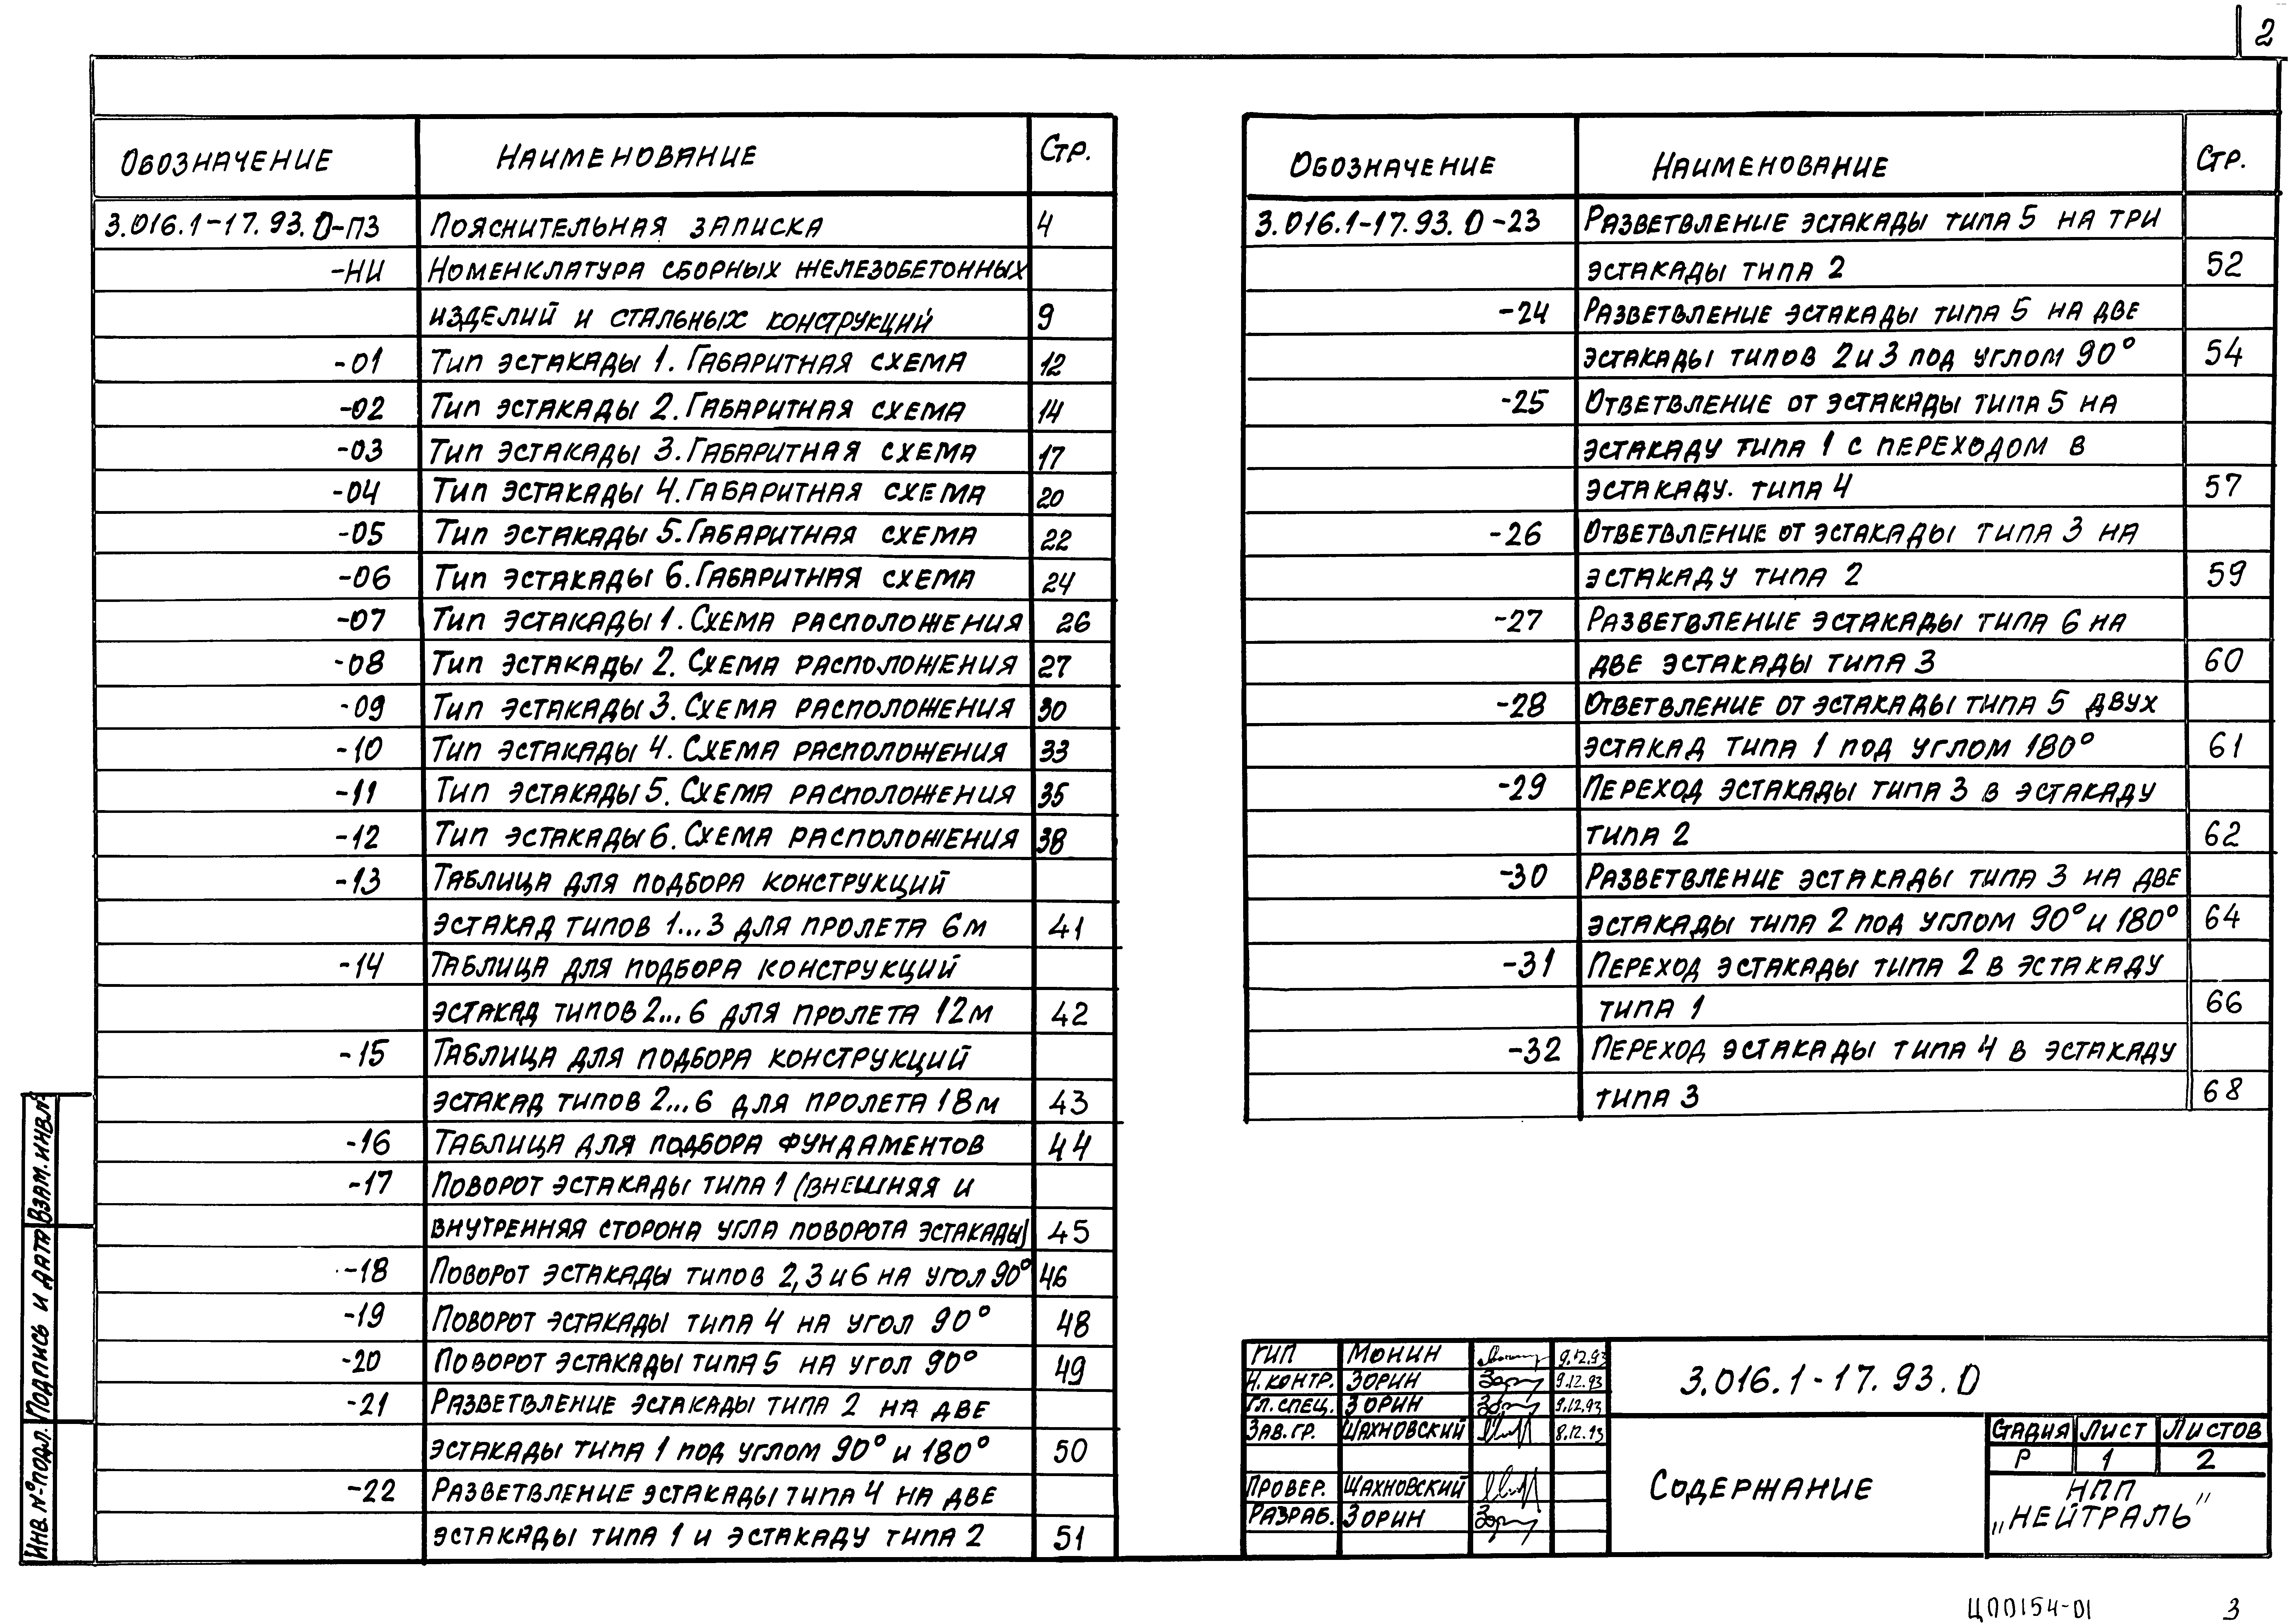 2
Обозначение Наименование Стр.
3.016.1-17.93.0-ПЗ Пояснительная записка 4
-НИ Номенклатура сборных железобетонных
изделий и стальных конструкций 9
-01 Тип эстакады 1. Габаритная схема 12
-02 Тип эстакады 2. Габаритная схема 14
-03 Тип эстакады 3. Габаритная схема 17
-04 Тип эстакады 4. Габаритная схема 20
-05 Тип эстакады 5. Габаритная схема 22
-06 Тип эстакады 6. Габаритная схема 24
-07 Тип эстакады 1. Схема расположения 26
-08 Тип эстакады 2. Схема расположения 27
-09 Тип эстакады 3. Схема расположения 30
-10 Тип эстакады 4. Схема расположения 33
-11 Тип эстакады 5. Схема расположения 35
-12 Тип эстакады 6. Схема расположения 38
-13 Таблица для подбора конструкций
эстакад типов 1...3 для пролета 6м 41
-14 Таблица для подбора конструкций
эстакад типов 2...6 для пролета 12м 42
-15 Таблица для подбора конструкций
эстакад типов 2...6 для пролета 18м 43
-16 Таблица для подбора фундаментов 44
-17 Поворот эстакады типа 1 (внешняя и
внутренняя сторона угла поворота эстакады) 45
-18 Поворот эстакады типов 2,3 и 6 на угол 90° 46
-19 Поворот эстакады типа 4 на угол 90° 48
-20 Поворот эстакады типа 5 на угол 90° 49
-21 Разветвление эстакады типа 2 на две
эстакады типа 1 под углом 90° и 180° 50
-22 Разветвление эстакады типа 4 на две
эстакады типа 1 и эстакаду типа 2 51
Обозначение Наименование Стр.
3.016.1-17.93.0-23 Разветвление эстакады типа 5 на три
эстакады типа 2 52
-24 Разветвление эстакады типа 5 на две
эстакады типов 2 и 3 под углом 90° 54
-25 Ответвление от эстакады типа 5 на
эстакаду типа 1 с переходом в
эстакаду. типа 4 57
-26 Ответвление от эстакады типа 3 на
эстакаду типа 2 59
-27 Разветвление эстакады типа 6 на
две эстакады типа 3 60
-28 Ответвление от эстакады типа 5 двух
эстакад типа 1 под углом 180° 61
-29 Переход эстакады типа 3 в эстакаду
типа 2 62
-30 Разветвление эстакады типа 3 на две
эстакады типа 2 под углом 90° и 180° 64
-31 Переход эстакады типа 2 в эстакаду
типа 1 66
-32 Переход эстакады типа 4 в эстакаду
типа 3 68
Инв. № подл. Подпись и дата Взам. инв.№
ГИП Монин 9.12.93
Н.контр. Зорин 9.12.93
Гл. спец. Зорин 9.12.93
Зав. гр. Шахновский 8.12.93
Провер. Шахновский
Разраб. Зорин
3.016.1-17.93.0
Содержание
Стадия Лист Листов
Р 1 2
НПП
„Нейтраль"
ЦП0154-01 3